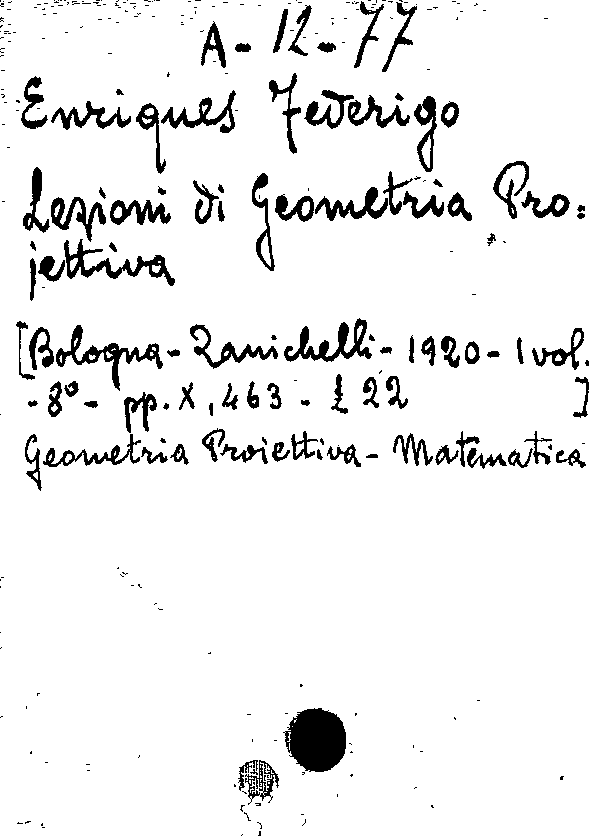 A-12-77
Enriques Federigo
Lezioni di Geometria Pro=
jettiva
[Bologna-Zanichelli-1920-1 vol.
-8º- pp. X, 463 - £ 22 ]
Geometria Proiettiva-Matematica